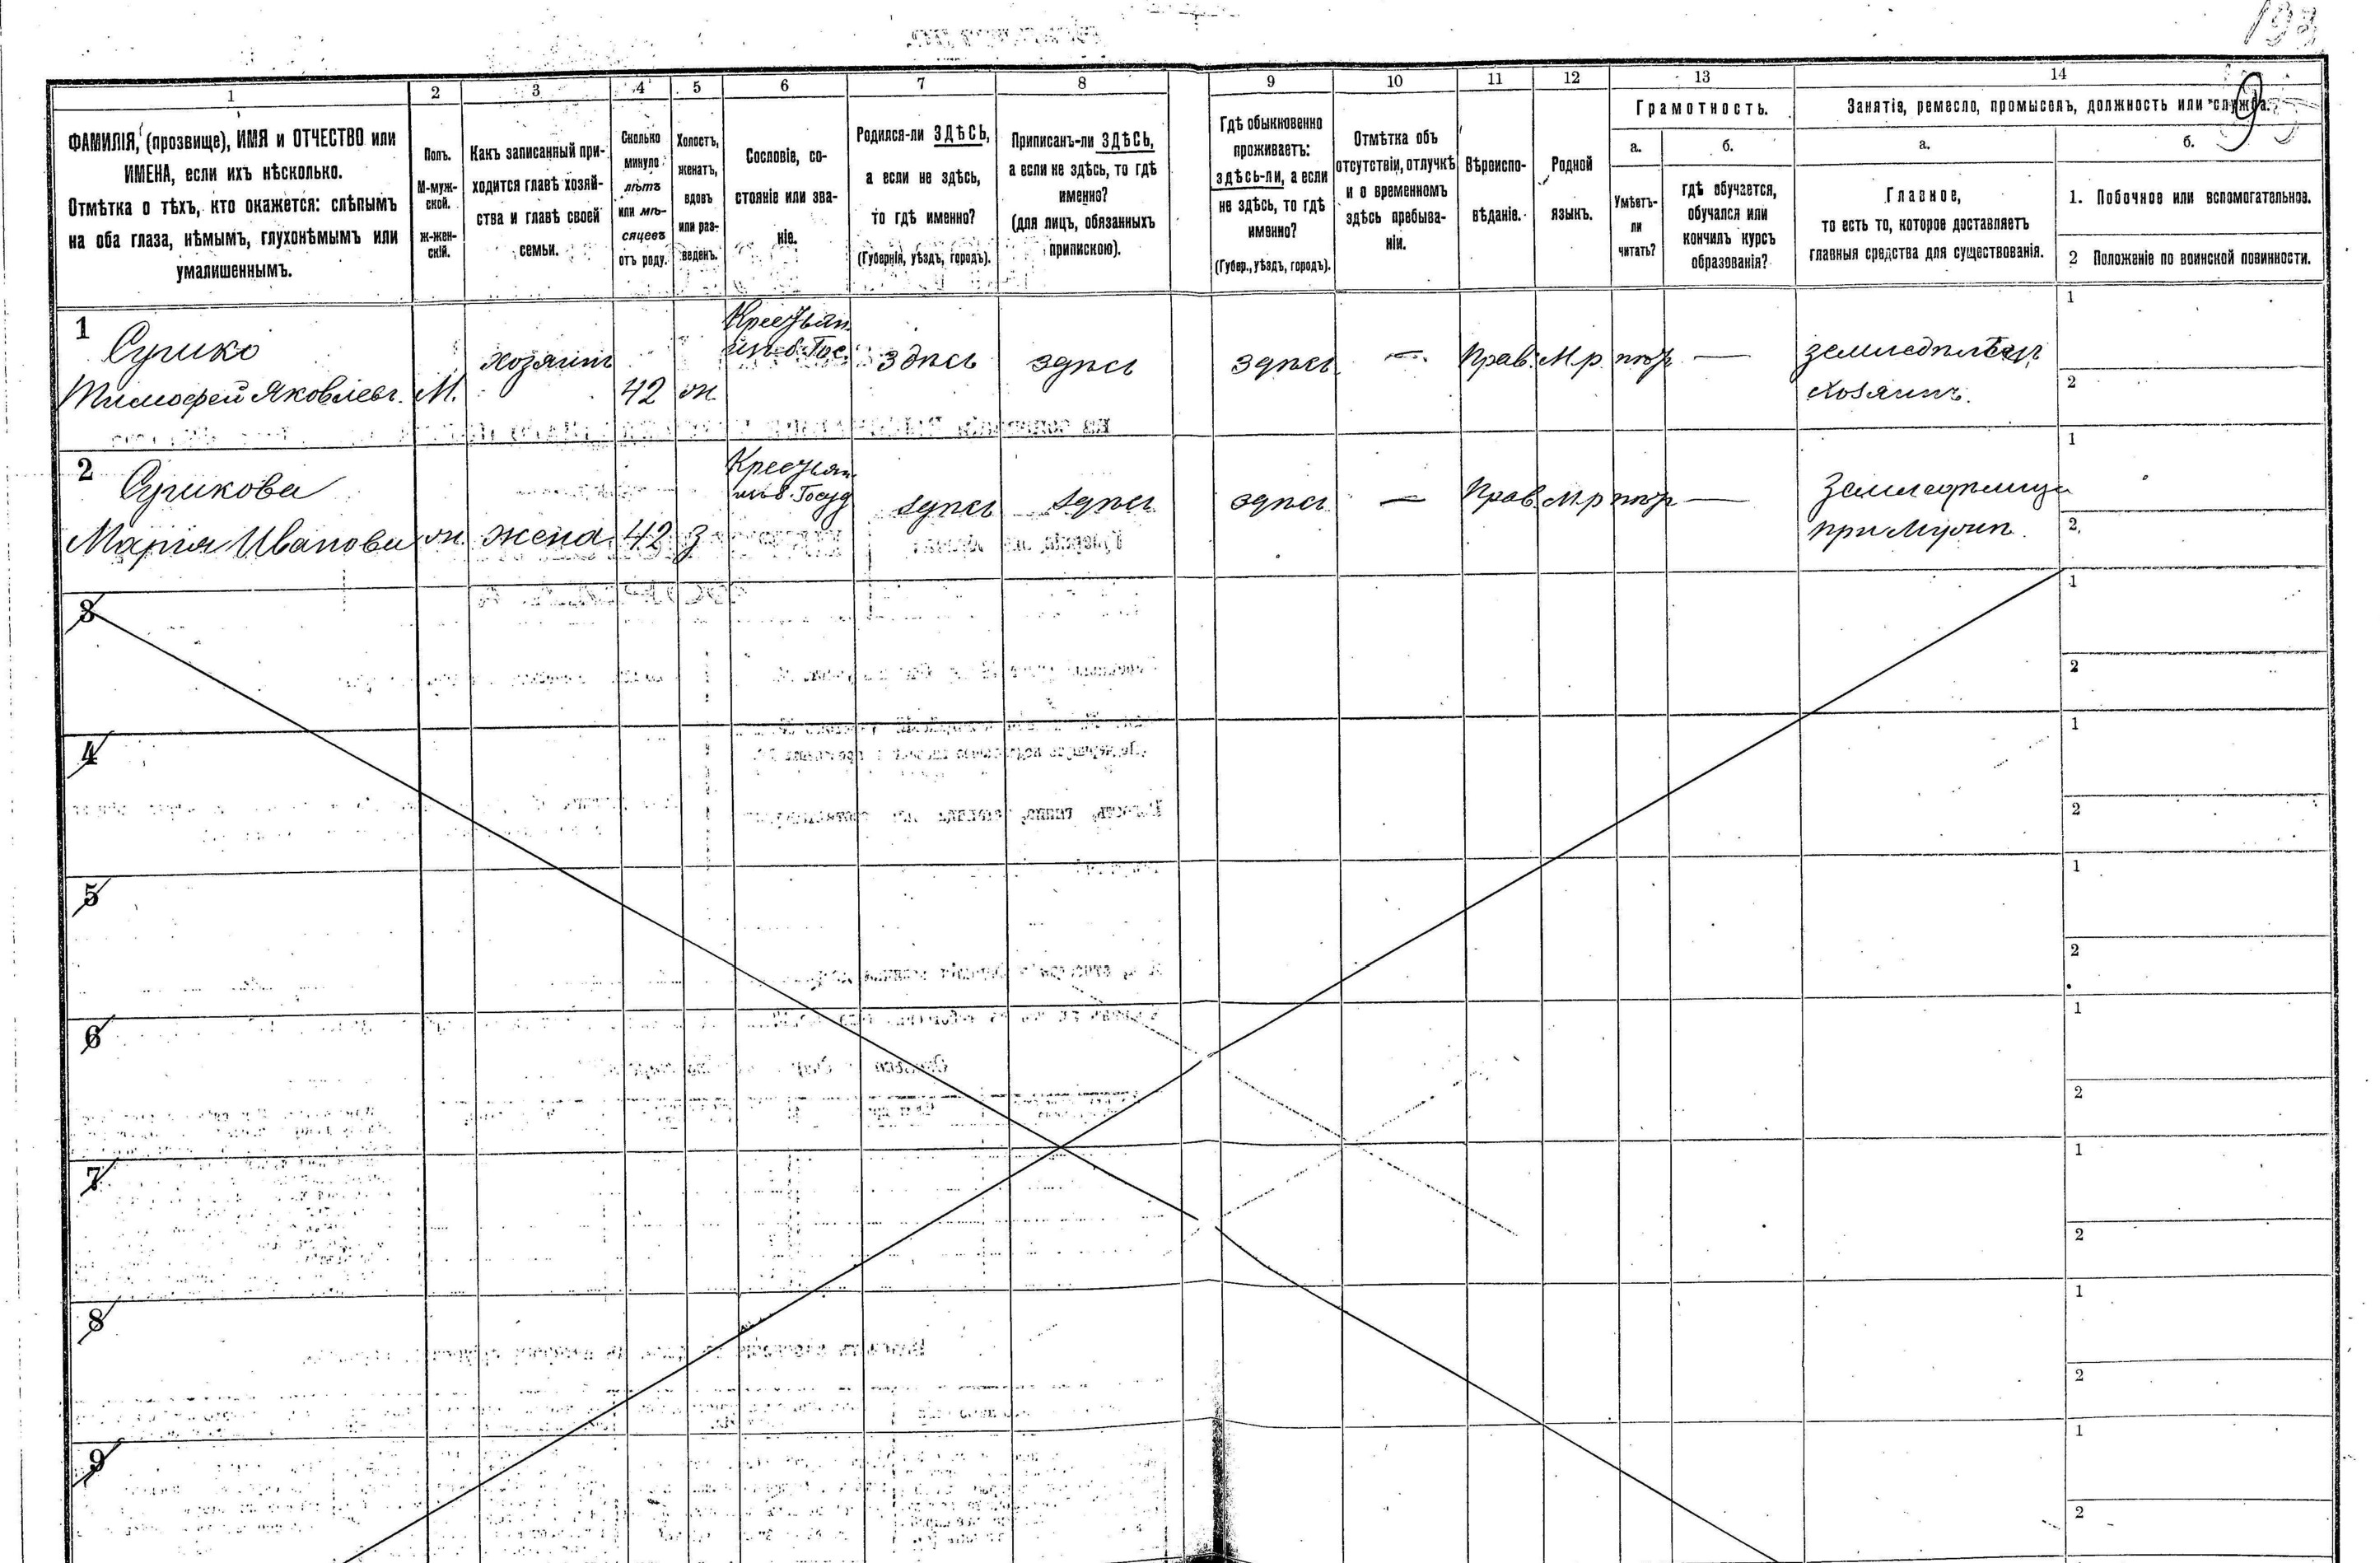 193
9
1 2 3 4 5 6 7 8 9 10 11 12 13 14
ФАМИЛІЯ, (прозвище), ИМЯ и ОТЧЕСТВО или
ИМЕНА, если ихъ нѣсколько.
Отмѣтка о тѣхъ, кто окажется: слѣпымъ
на оба глаза, нѣмымъ, глухонѣмымъ или
умалишеннымъ.
Полъ.
М-муж-
ской.
Ж-жен-
скій.
Какъ записанный при-
ходится главѣ хозяй-
ства и главѣ своей
семьи.
Сколько
минуло
лѣтъ
или мѣ-
сяцевъ
отъ роду.
Холостъ,
женатъ,
вдовъ
или раз-
веденъ.
Сословіе, со-
стояніе или зва-
ніе.
Родился-ли ЗДѢСЬ,
а если не здѣсь,
то гдѣ именно?
(Губернія, уѣздъ, городъ).
Приписанъ-ли ЗДѢСЬ,
а если не здѣсь, то гдѣ
именно?
(для лицъ, обязанныхъ
припискою).
Гдѣ обыкновенно
проживаетъ:
здѣсь-ли, а если
не здѣсь, то гдѣ
именно?
(Губер., уѣздъ, городъ).
Отмѣтка объ
отсутствіи, отлучкѣ
и о временномъ
здѣсь пребыва-
ніи.
Вѣроиспо-
вѣданіе.
Родной
языкъ.
Грамотность.
а.
Умѣетъ-
ли
читать?
б.
гдѣ обучается,
обучался или
кончилъ курсъ
образованія?
Занятія, ремесло, промыселъ, должность или служба.
а.
Главное,
то есть то, которое доставляетъ
главныя средства для существованія.
б.
1. Побочное или вспомогательное.
2 Положеніе по воинской повинности.
1
Сушко
Тимофей Яковлевъ.
М.
хозяинъ
42
ж.
Крестьян.
изъ б. Гос.
здѣсь
здѣсь
здѣсь
—
Прав.
М.р.
нѣт
—
земледѣлец
хозяинъ.
1
2
2
Сушкова
Марія Иванова
ж.
жена
42
з
Крестьян.
изъ б. Госуд
здѣсь
здѣсь
здѣсь
—
Прав.
М.р
нѣт
—
Земледѣлица
при мужѣ.
1
2.
3
1
2
4
1
2
5
1
2
6
1
2
7
1
2
8
1
2
9
1
2